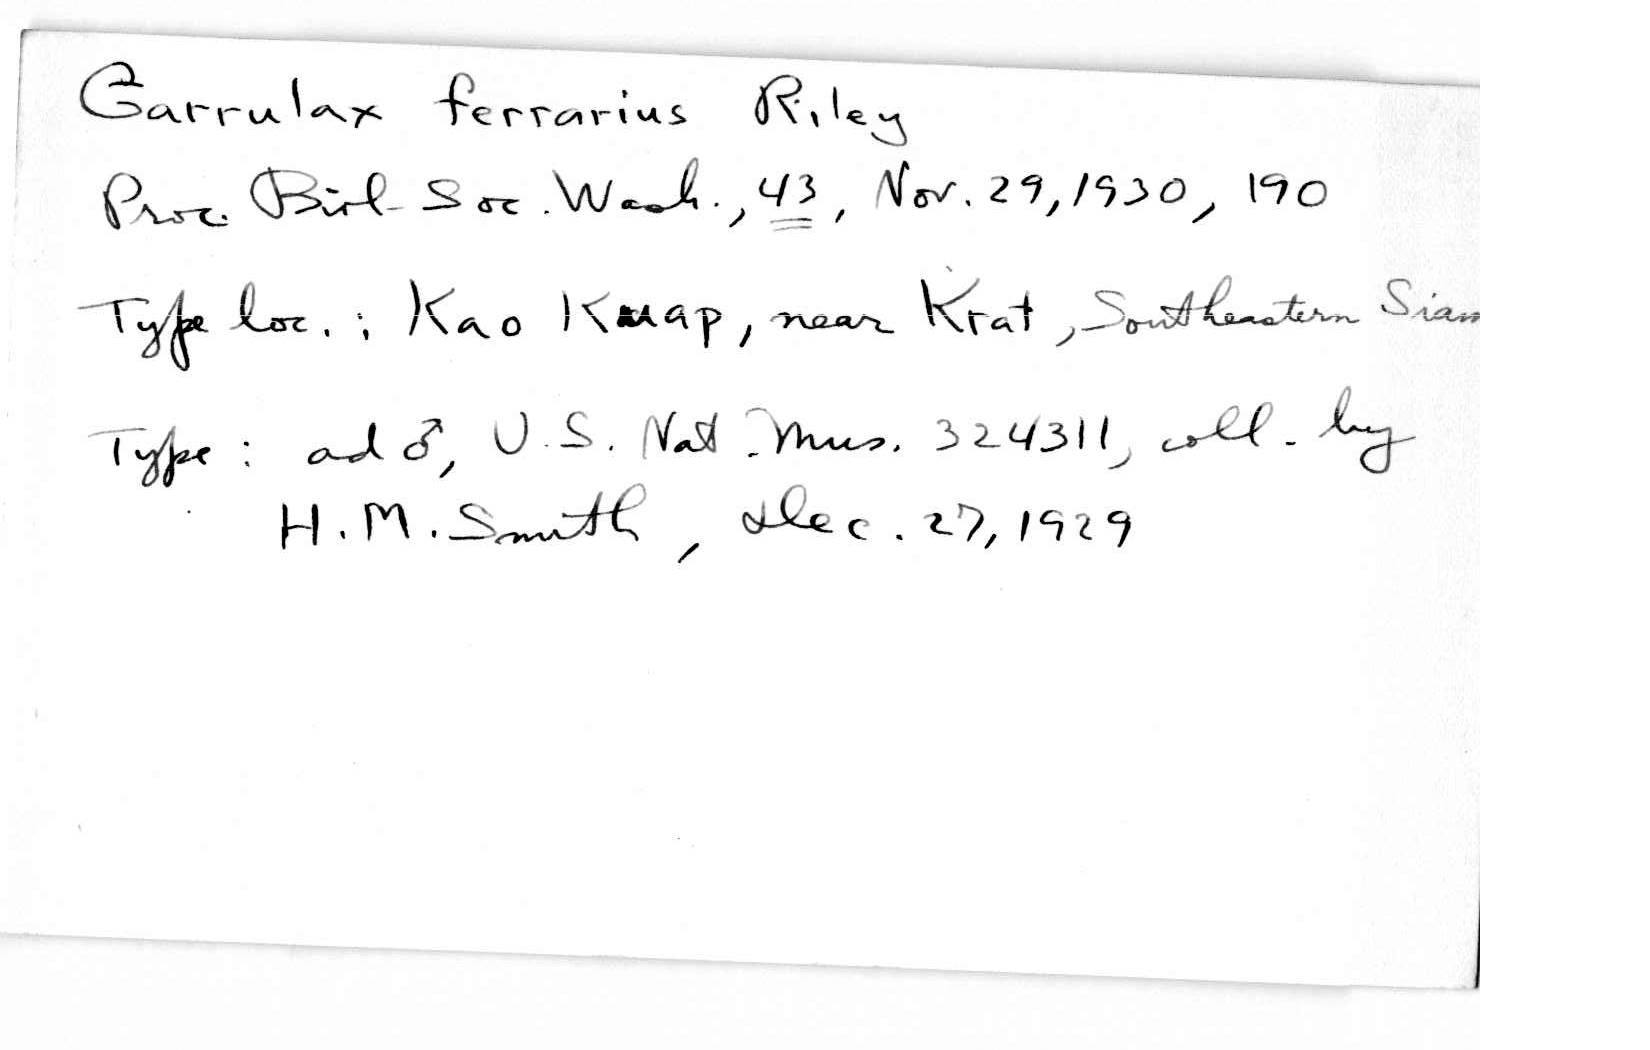 Garrulax ferrarius Riley
Proc. Biol. Soc. Wash., 43, Nov. 29, 1930, 190
Type loc.: Kao Kuap, near Krat, Southeastern Siam
Type: ad ♂, U.S. Nat. Mus. 324311, coll. by
H.M. Smith, Dec. 27, 1929